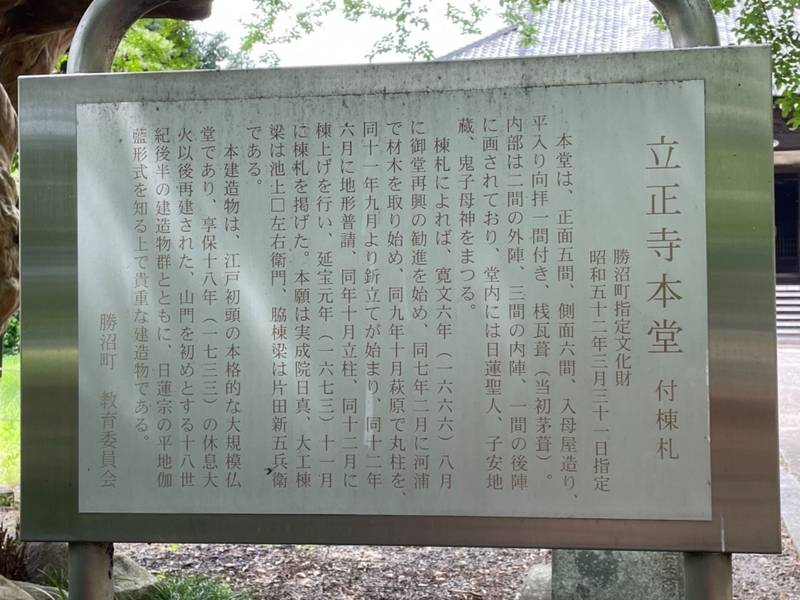 立正寺本堂 付棟札
勝沼町指定文化財
昭和五十二年三月三十一日指定
本堂は、正面五間、側面六間、入母屋造り、
平入り向拝一間付き、桟瓦葺（当初茅葺）。
内部は二間の外陣、三間の内陣、一間の後陣
に画されており、堂内には日蓮聖人、子安地
蔵、鬼子母神をまつる。
棟札によれば、寛文六年（一六六六）八月
に御堂再興の勧進を始め、同七年二月に河浦
で材木を取り始め、同九年十月萩原で丸柱を、
同十一年九月より釿立てが始まり、同十二年
六月に地形普請、同年十月立柱、同十二月に
棟上げを行い、延宝元年（一六七三）十一月
に棟札を掲げた。本願は実成院日真、大工棟
梁は池上□左右衛門、脇棟梁は片田新五兵衛
である。
本建造物は、江戸初頭の本格的な大規模仏
堂であり、享保十八年（一七三三）の休息大
火以後再建された、山門を初めとする十八世
紀後半の建造物群とともに、日蓮宗の平地伽
藍形式を知る上で貴重な建造物である。
勝沼町 教育委員会